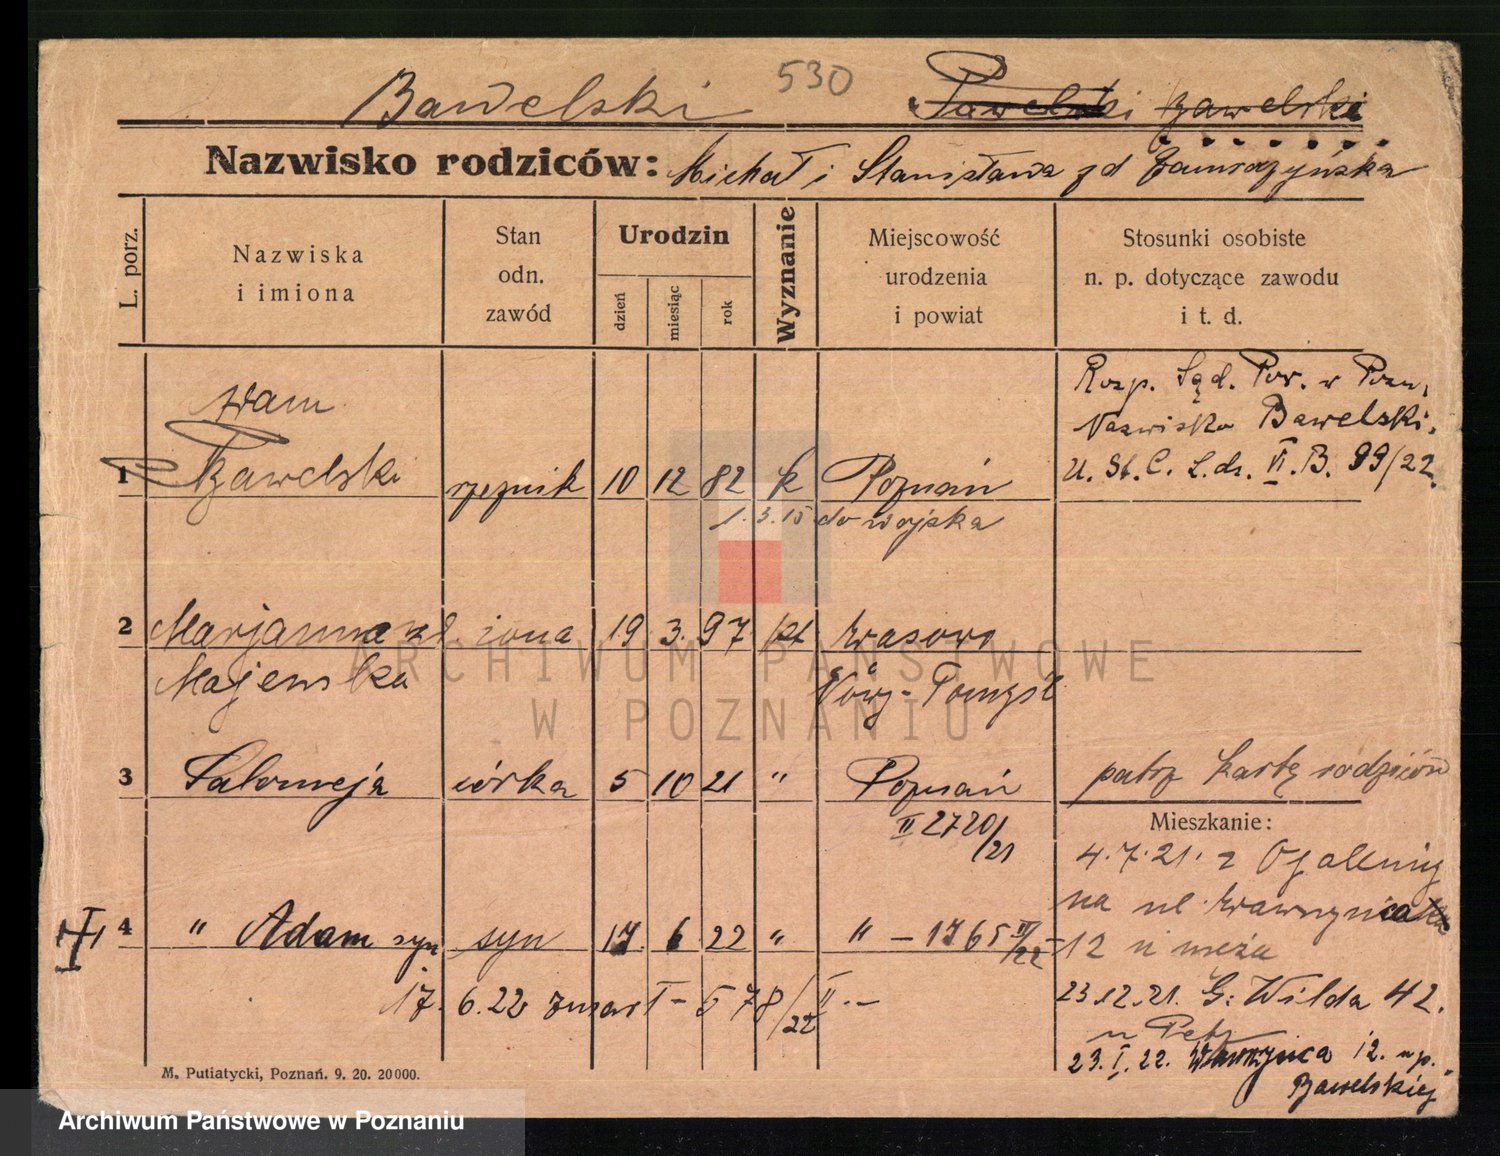 Bawelski 530 Pawelski Bawelski
Nazwisko rodziców: Michał i Stanisława zd
L. porz.
Nazwiska i imiona
Stan odn. zawód
Urodzin
dzień miesiąc rok
Wyznanie
Miejscowość urodzenia i powiat
Stosunki osobiste n. p. dotyczące zawodu i t. d.
Rozp. Sąd. Pow. w Pozn.
Nazwisko Bawelski.
U. St. C. L.dz. VI. B. 99/22.
Adam
1 Bawelski rzeźnik 10 12 82 k Poznań
1.3.15 do wojska
2 Marjanna zd. żona 19 3. 97 kt Wąsowo
Majewska Nowy-Tomyśl
3 Salomeja córka 5 10 21 " Poznań patrz kartę rodziców
II 2720/21
Mieszkanie:
4.7.21. z
na ul Wawrzyńca
4 " Adam syn syn 17 6 22 " " - 1765 II/22 - 12 u męża
17. 6.22 zmarł - 578/22 II. -
23.12.21. G: Wilda 42.
23. I. 22. Wawrzyńca 12. u p.
Bawelskiej
M. Putiatycki, Poznań. 9. 20. 20000.
ARCHIWUM PAŃSTWOWE
W POZNANIU
Archiwum Państwowe w Poznaniu